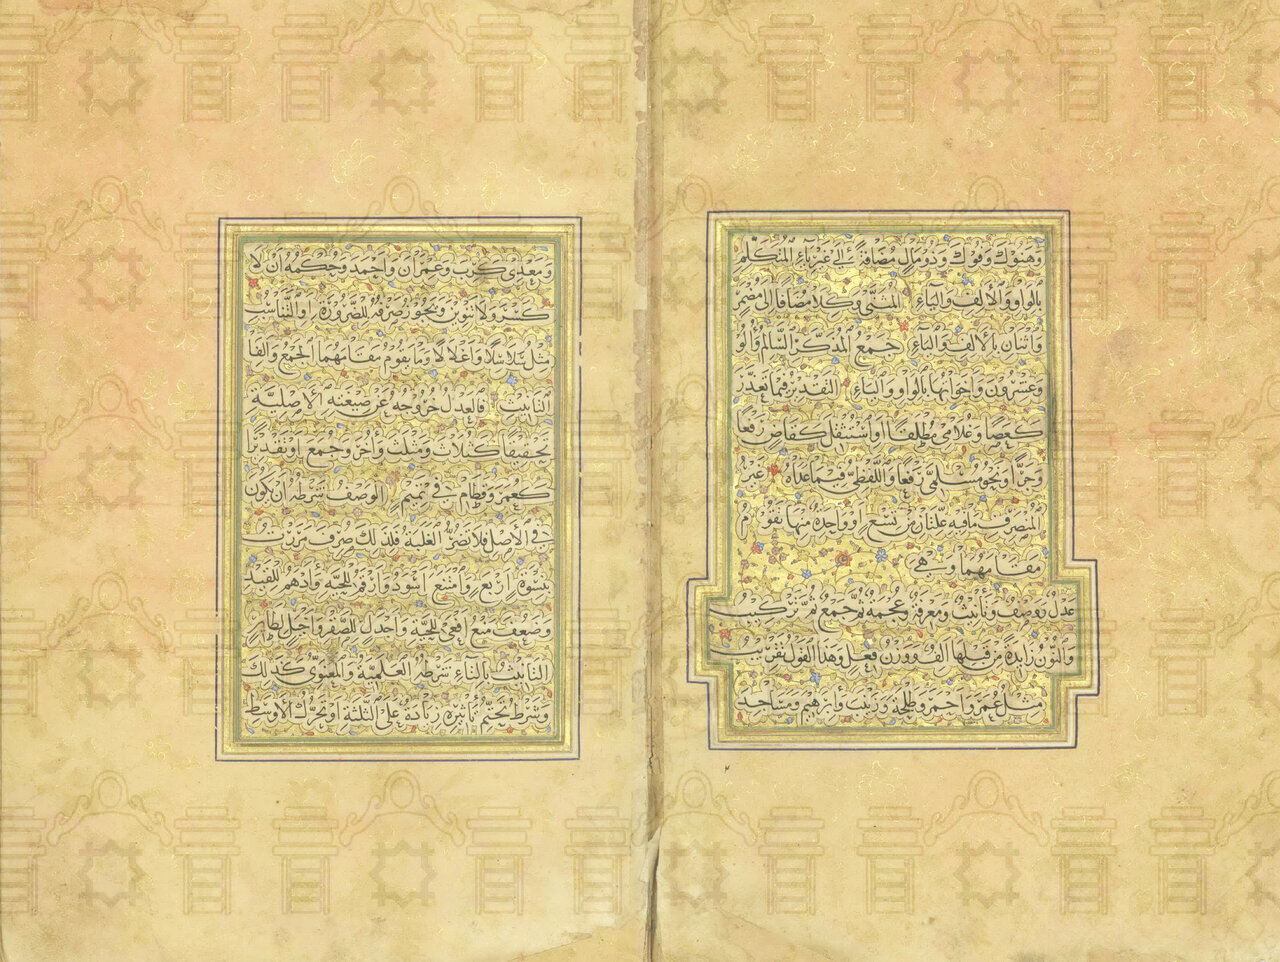 وَهَنُوكَ وَفُوكَ وَذُو مَالٍ مُضَافَةً إِلَى غَيْرِ يَاءِ الْمُتَكَلِّمِ
بِالْوَاوِ وَالْأَلِفِ وَالْيَاءِ الْمُثَنَّى وَكِلَا مُضَافًا إِلَى مُضْمَرٍ
وَاثْنَانِ بِالْأَلِفِ وَالْيَاءِ جَمْعُ الْمُذَكَّرِ السَّالِمِ وَأُولُو
وَعِشْرُونَ وَأَخَوَاتُهَا بِالْوَاوِ وَالْيَاءِ التَّقْدِيرُ فِيمَا تَعَذَّرَ
كَعَصًا وَغُلَامِي مُطْلَقًا أَوِ اسْتُثْقِلَ كَقَاضٍ رَفْعًا
وَجَرًّا وَنَحْوُ مُسْلِمِيَّ رَفْعًا وَاللَّفْظِيُّ فِيمَا عَدَاهُ غَيْرُ
الْمُنْصَرِفِ مَا فِيهِ عِلَّتَانِ مِنْ تِسْعٍ أَوْ وَاحِدَةٌ مِنْهَا تَقُومُ
مَقَامَهُمَا وَهِيَ
عَدْلٌ وَوَصْفٌ وَتَأْنِيثٌ وَمَعْرِفَةٌ وَعُجْمَةٌ ثُمَّ جَمْعٌ ثُمَّ تَرْكِيبُ
وَالنُّونُ زَائِدَةً مِنْ قَبْلِهَا أَلِفٌ وَوَزْنُ فِعْلٍ وَهَذَا الْقَوْلُ تَقْرِيبُ
مِثْلُ عُمَرَ وَأَحْمَرَ وَطَلْحَةَ وَزَيْنَبَ وَإِبْرَاهِيمَ وَمَسَاجِدَ
وَمَعْدِي كَرِبَ وَعِمْرَانَ وَأَحْمَدَ وَحُكْمُهُ أَنْ لَا
كَسْرَ وَلَا تَنْوِينَ وَيَجُوزُ صَرْفُهُ لِلضَّرُورَةِ أَوْ لِلتَّنَاسُبِ
مِثْلُ سَلَاسِلًا وَأَغْلَالًا وَمَا يَقُومُ مَقَامَهُمَا الْجَمْعُ وَأَلِفَا
التَّأْنِيثِ فَالْعَدْلُ خُرُوجُهُ عَنْ صِيغَتِهِ الْأَصْلِيَّةِ
تَحْقِيقًا كَثُلَاثَ وَمَثْلَثَ وَأُخَرَ وَجُمَعَ أَوْ تَقْدِيرًا
كَعُمَرَ وَقَطَامِ فِي تَمِيمٍ الْوَصْفُ شَرْطُهُ أَنْ يَكُونَ
فِي الْأَصْلِ فَلَا تَضُرُّ الْغَلَبَةُ فَلِذَلِكَ صُرِفَ مَرَرْتُ
بِنِسْوَةٍ أَرْبَعٍ وَامْتَنَعَ أَسْوَدُ وَأَرْقَمُ لِلْحَيَّةِ وَأَدْهَمُ لِلْقَيْدِ
وَضَعُفَ مَنْعُ أَفْعَى لِلْحَيَّةِ وَأَجْدَلٍ لِلصَّقْرِ وَأَخْيَلٍ لِطَائِرٍ
التَّأْنِيثُ بِالتَّاءِ شَرْطُهُ الْعَلَمِيَّةُ وَالْمَعْنَوِيُّ كَذَلِكَ
وَشَرْطُ تَحَتُّمِ تَأْثِيرِهِ زِيَادَةٌ عَلَى الثَّلَثَةِ أَوْ تَحَرُّكُ الْأَوْسَطِ